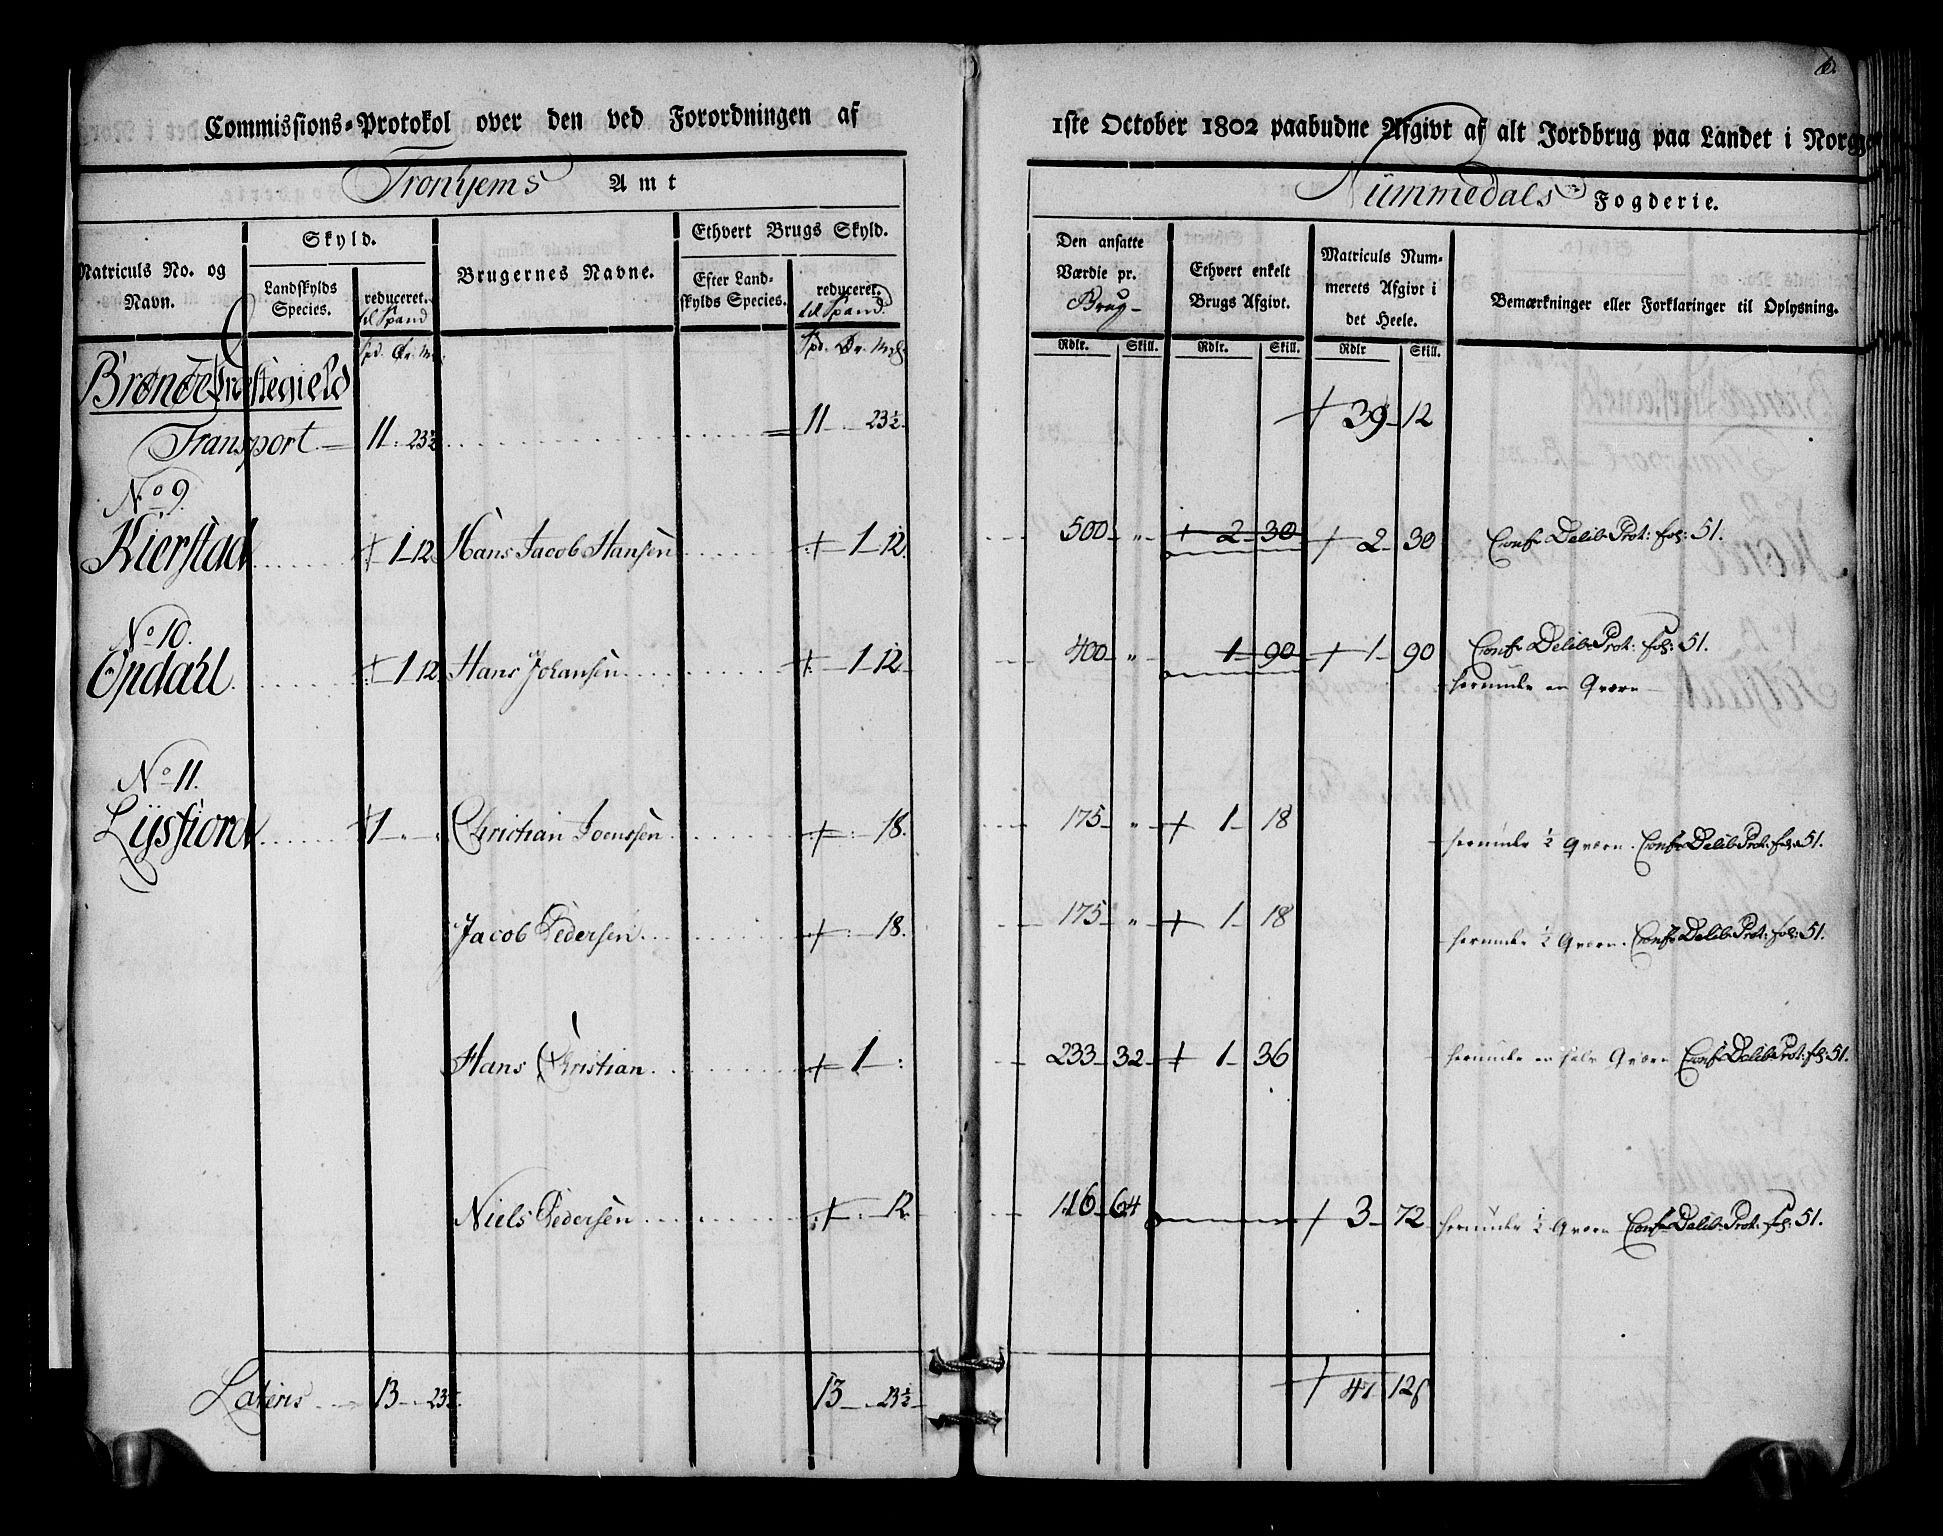 Commissions-Protokol over den ved Forordningen af
1ste October 1802 paabudne Afgivt af alt Jordbrug paa Landet i Norge
Tronhjems Amt
Nummedals Fogderie.
Matriculs No. og Navn.
Skyld.
Landskylds Species.
reduceret. til Spand
Brugernes Navne.
Ethvert Brugs Skyld.
Efter Landskylds Species.
reduceret. til Spand.
Den ansatte Værdie pr. Brug
Ethvert enkelt Brugs Afgivt.
Matriculs Nummerets Afgivt i det Heele.
Bemærkninger eller Forklaringer til Oplysning.
Spd. Ør. Mrk. Spd. Ør. Mrk. Rdlr. Skill. Rdlr. Skill. Rdlr Skill.
Brønøe Præstegield
Transport 11 : 23½ 11 23½ 39 12
No 9.
Kierstad 1 12 Hans Jacob Hansen 1 12. 500 " 2 30 2 30 Conf: Delib: Prot: fol: 51.
No 10.
Opdahl 1 12 Hans Johansen 1 12 400 " 1 90 1 90 Conf: Delib: Prot: fol: 51.
herunder en Qværn
No 11.
Lysfiord 1 " " Christian Joenssen 18. 175 " 1 18 herunder ½ Qværn. Conf: Delib: Prot: fol: 51.
Jacob Pedersen 18. 175 " 1 18 herunder ½ Qværn. Conf: Delib: Prot: fol: 51.
Hans Christian 1 : 233 32 1 36 herunder en halv Qværn Conf: Delib: Prot: fol: 51.
Niels Pedersen 12 116 64 3 72 herunder ½ Qværn Conf: Delib: Prot: fol: 51.
Lateris 13 23½ 13 23½ 47